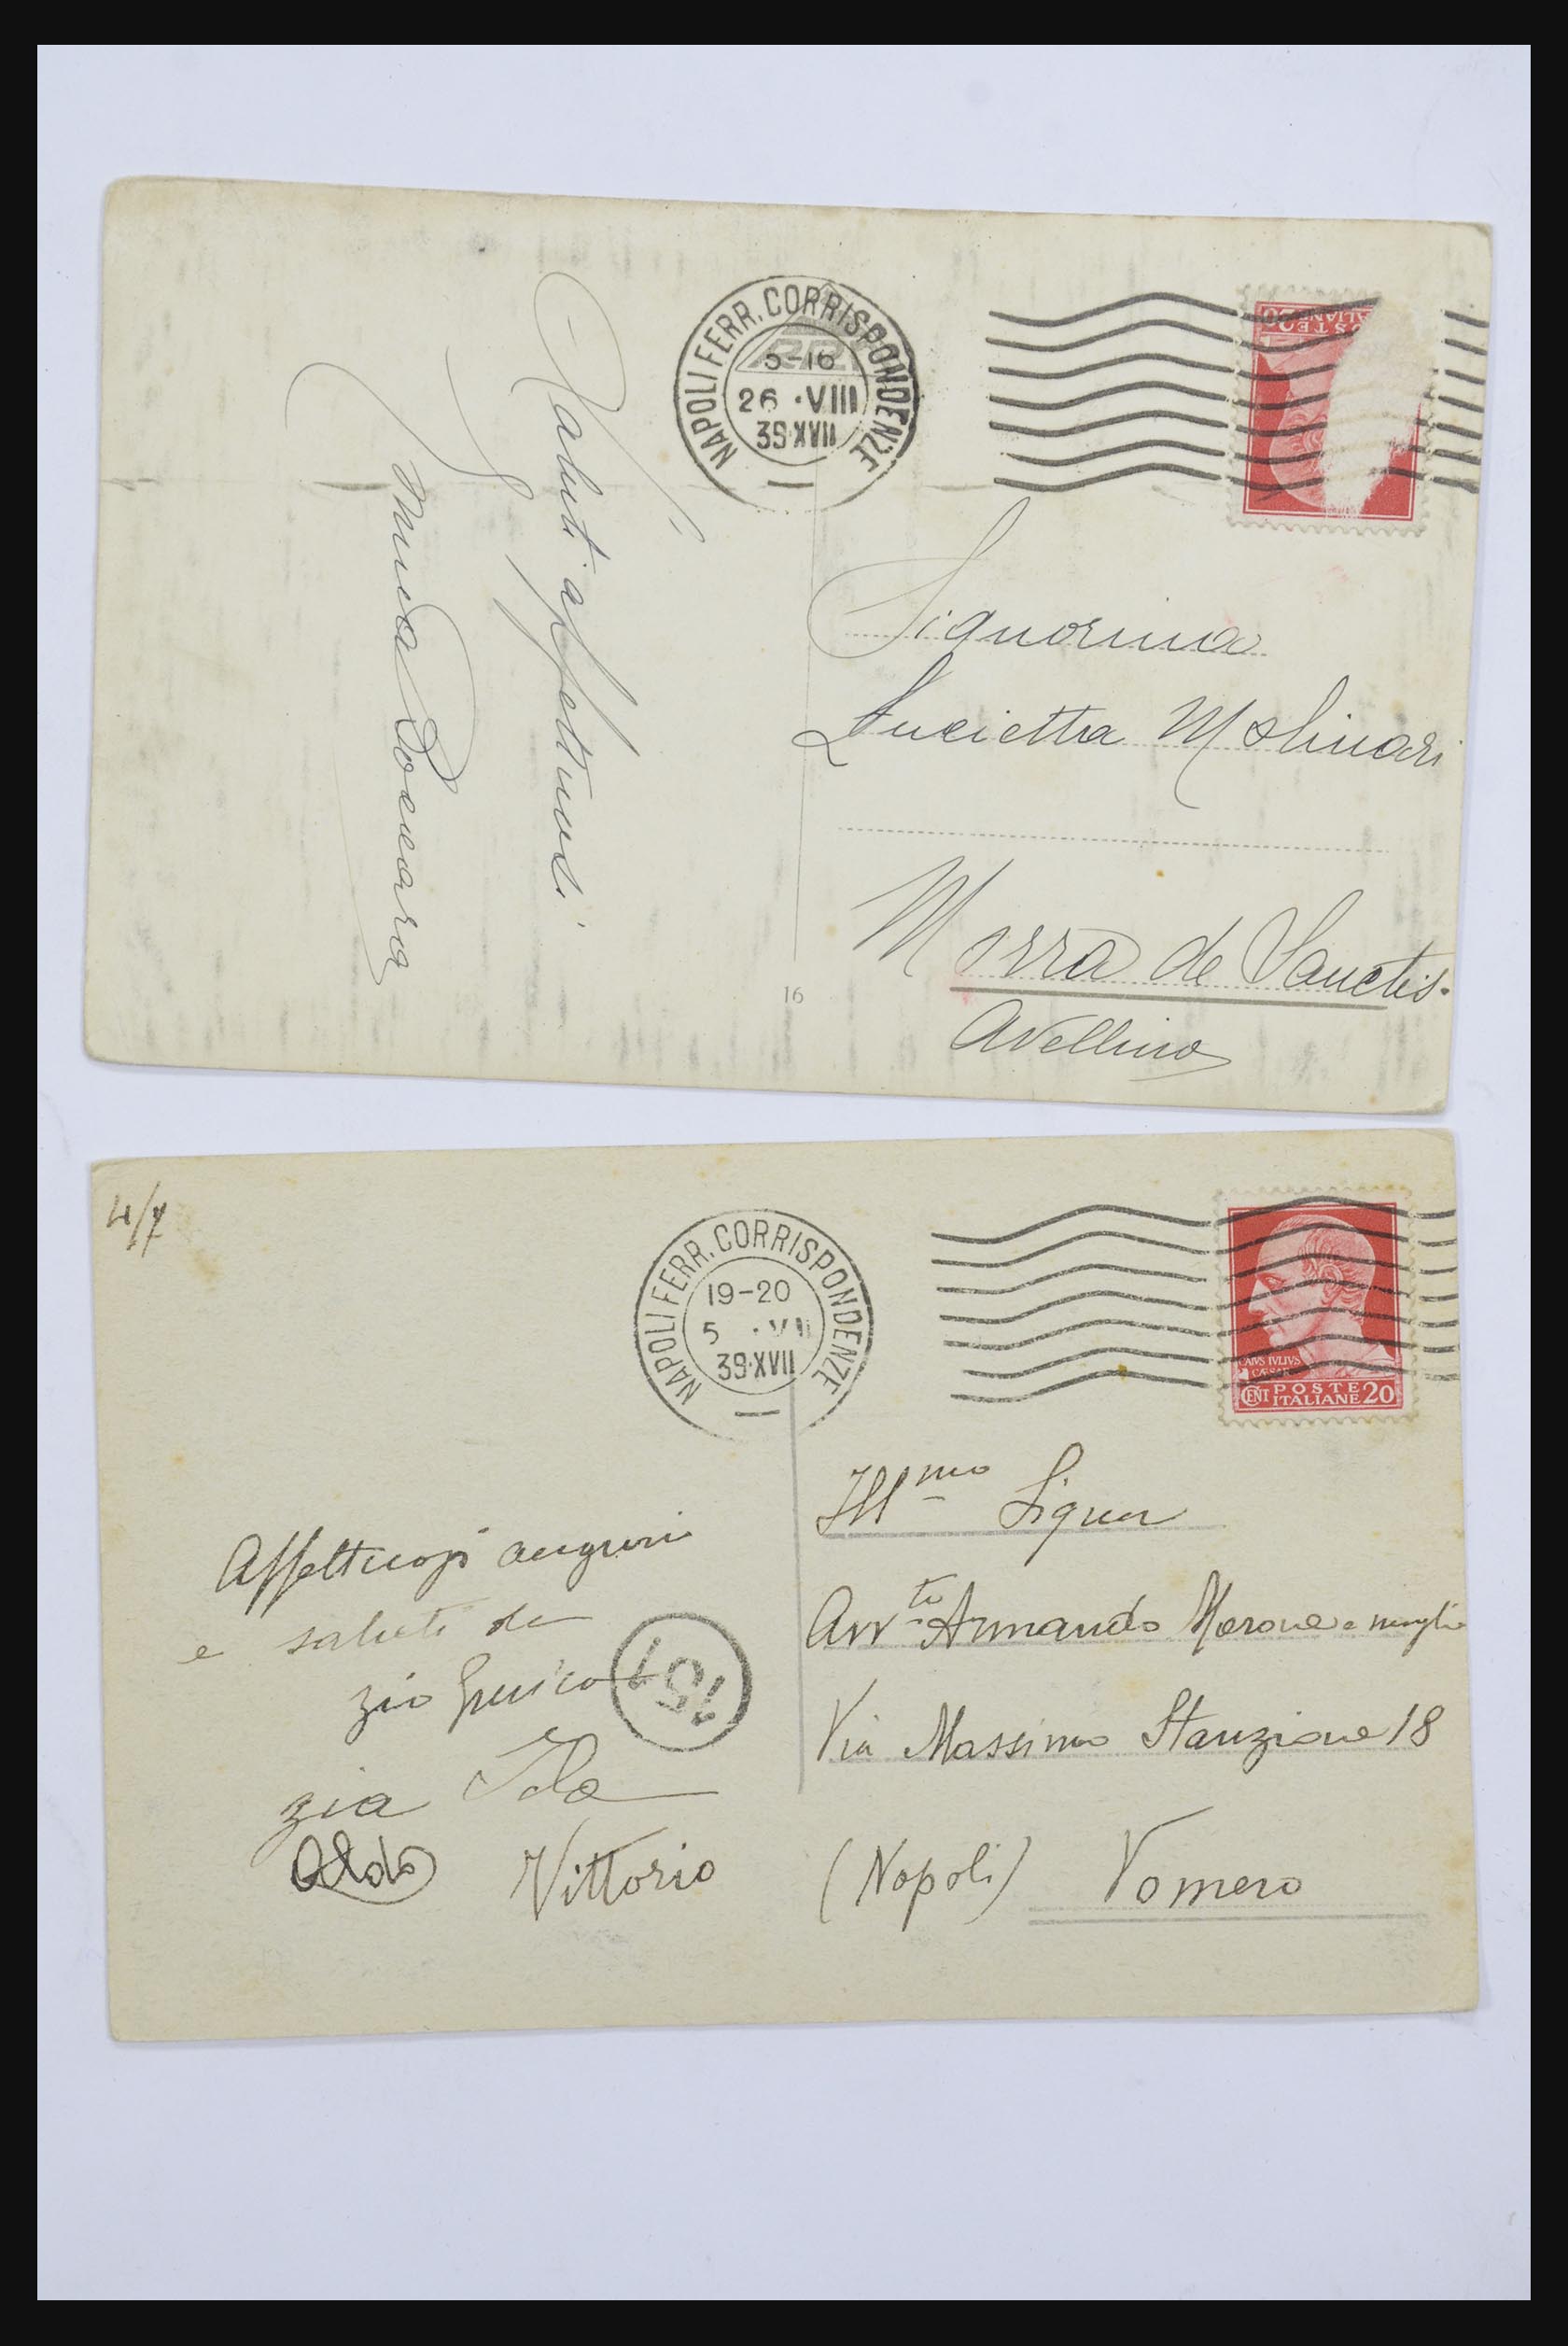 NAPOLI FERR. CORRISPONDENZE
5-16
26 · VIII
39·XVII
POSTE
ITALIANE
20
Saluti affettuosi
Signorina
Lucietta Molinari
Morra de Sanctis.
Avellino
16
4/7
NAPOLI FERR. CORRISPONDENZE
19-20
5 · VII
39·XVII
CAIVS IVLIVS
CAESAR
CENT POSTE ITALIANE 20
Affettuosi auguri
e saluti da
zio
151
zia Ida
Aldo Vittorio
Illmo Signor
Avvto Armando Morone e moglie
Via Massimo Stanzione 18
(Napoli) Vomero